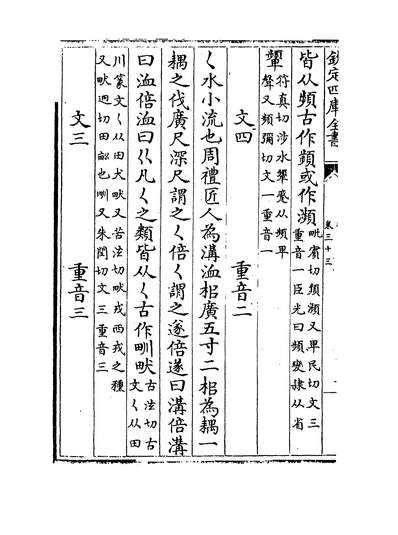 欽定四庫全書
卷三十三
皆从頻古作或作瀕
毗賓切頻瀕又卑民切文三
重音一臣光曰頻變隸从省
顰
符真切涉水顰蹙从頻卑
聲又頻彌切文一重音一
文四　重音二
〈水小流也周禮匠人為溝洫枱廣五寸二枱為耦一
耦之伐廣尺深尺謂之〈倍〈謂之遂倍遂曰溝倍溝
曰洫倍洫曰巜凡〈之類皆从〈古作甽畎
古泫切古
文〈从田
川篆文〈从田犬畎又苦泫切畎戎西戎之種
又畎迥切田畆也甽又朱閏切文三重音三
文三　重音三